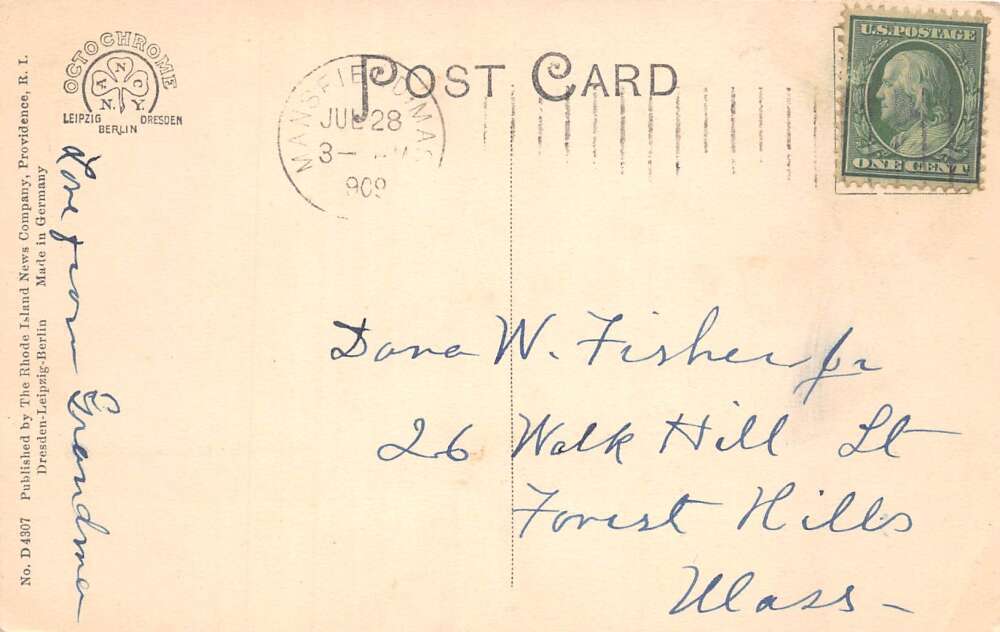 OCTOCHROME
A N C
N. Y.
LEIPZIG DRESDEN
BERLIN
POST CARD
MANSFIELD, MAS
JUL 28
3-
1909
U.S. POSTAGE
ONE CENT
No. D 4307 Published by The Rhode Island News Company, Providence, R. I.
Dresden-Leipzig-Berlin Made in Germany
Love from Grandma
Dana W. Fisher Jr
26 Walk Hill St
Forest Hills
Mass-